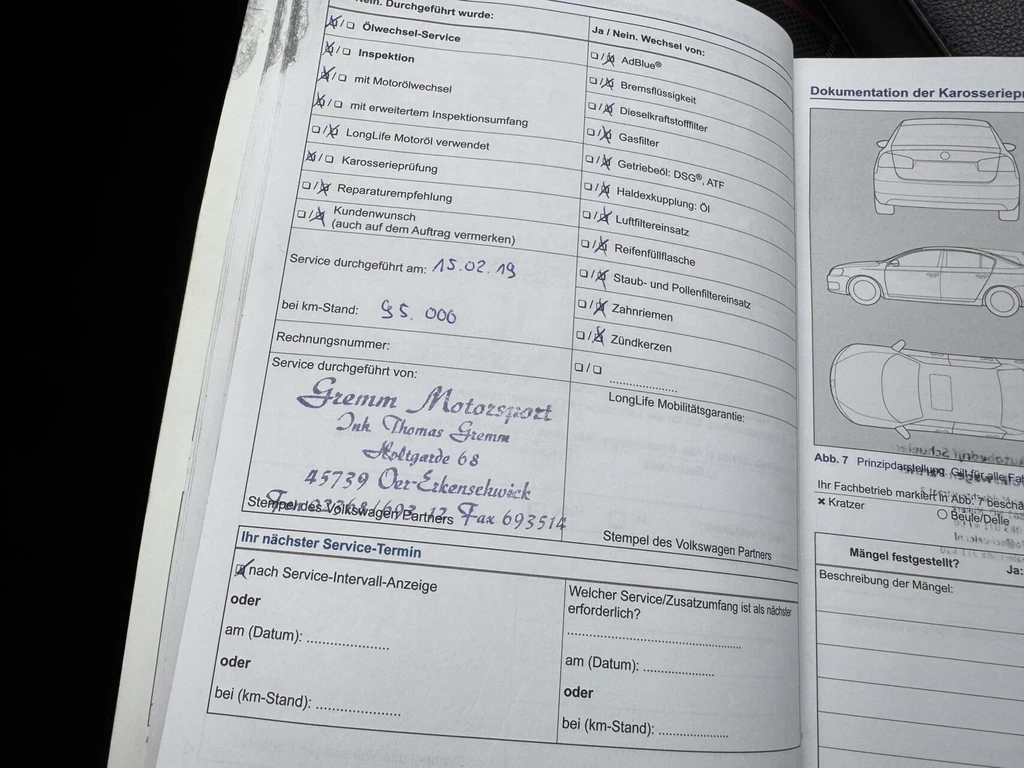 Nein. Durchgeführt wurde:
Ölwechsel-Service
Inspektion
mit Motorölwechsel
mit erweitertem Inspektionsumfang
LongLife Motoröl verwendet
Karosserieprüfung
Reparaturempfehlung
Kundenwunsch
(auch auf dem Auftrag vermerken)
Service durchgeführt am: 15.02.19
bei km-Stand: 95.000
Rechnungsnummer:
Service durchgeführt von:
Gremm Motorsport
Inh. Thomas Gremm
Holtgarde 68
45739 Oer-Erkenschwick
Fax 693514
Stempel des Volkswagen Partners
Ja / Nein. Wechsel von:
AdBlue®
Bremsflüssigkeit
Dieselkraftstofffilter
Gasfilter
Getriebeöl: DSG®, ATF
Haldexkupplung: Öl
Luftfiltereinsatz
Reifenfüllflasche
Staub- und Pollenfiltereinsatz
Zahnriemen
Zündkerzen
LongLife Mobilitätsgarantie:
Stempel des Volkswagen Partners
Ihr nächster Service-Termin
nach Service-Intervall-Anzeige
oder
am (Datum): ..................
oder
bei (km-Stand): ..................
Welcher Service/Zusatzumfang ist als nächster
erforderlich?
am (Datum): ..................
oder
bei (km-Stand): ..................
Dokumentation der
Abb. 7 Prinzipdarstellung. Gilt für alle
Ihr Fachbetrieb markiert in Abb. 7
× Kratzer
Beule/Delle
Mängel festgestellt?
Ja:
Beschreibung der Mängel: